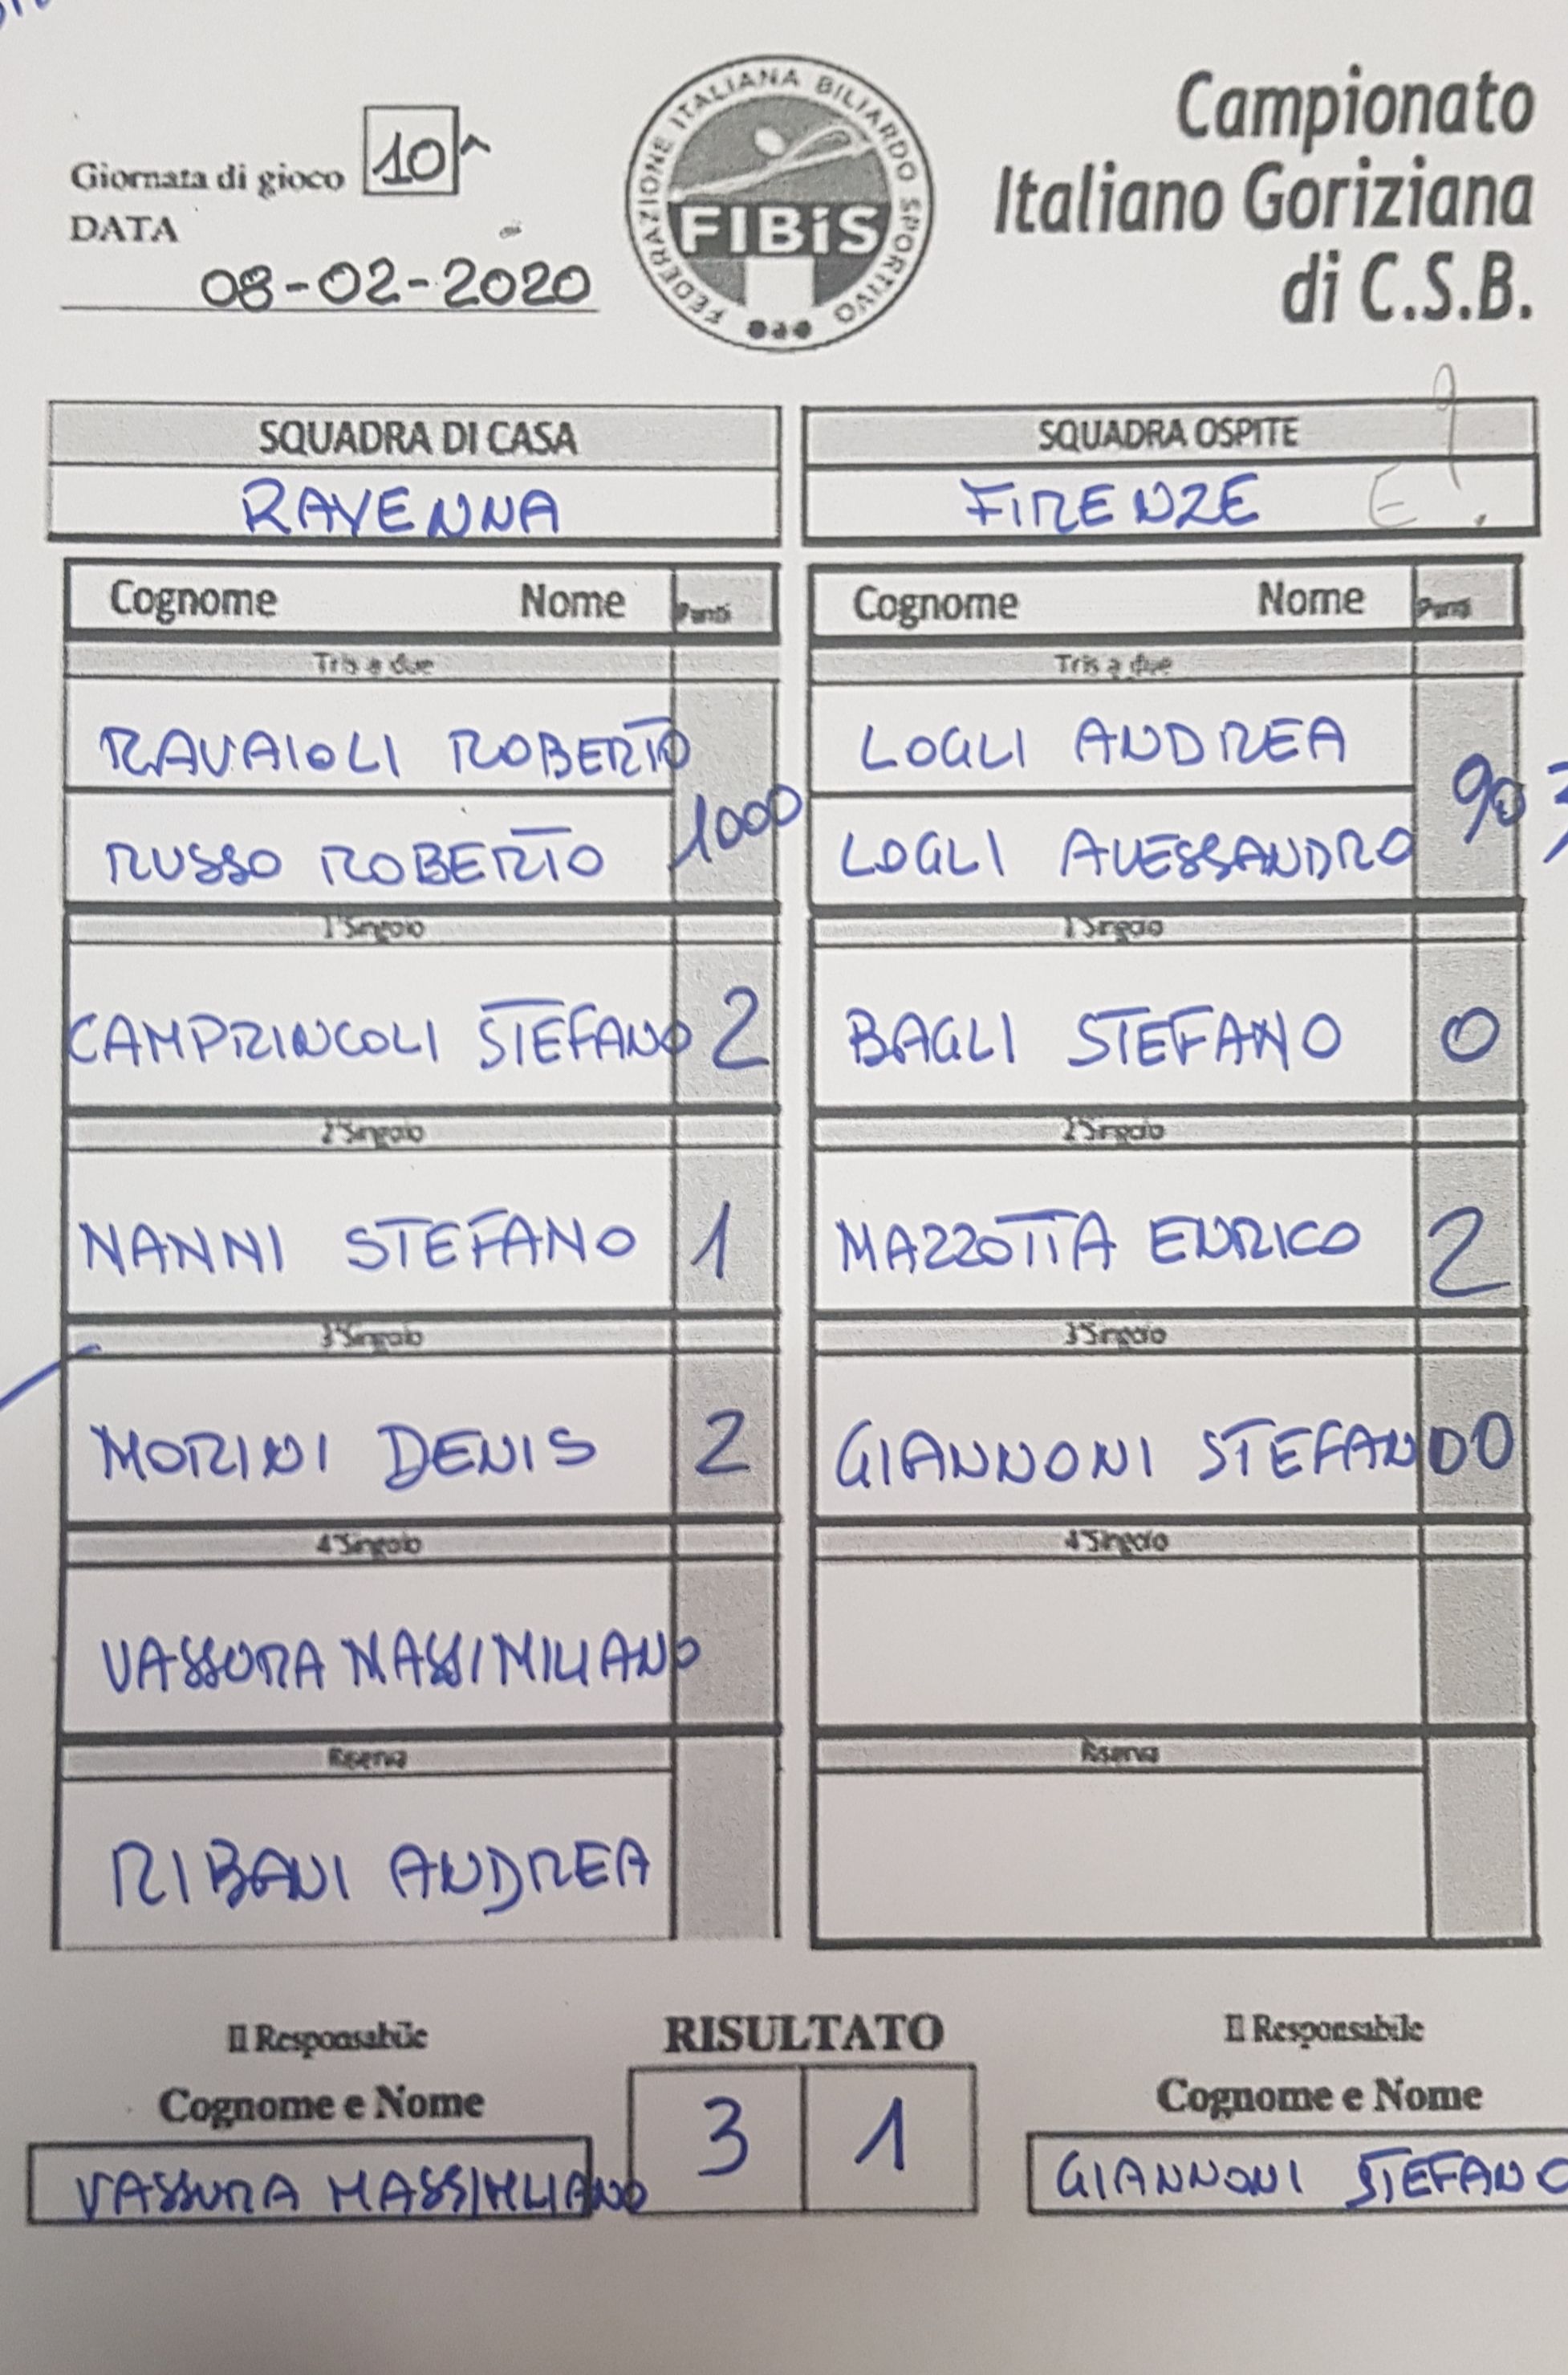 Giornata di gioco 10^
DATA
08-02-2020
FEDERAZIONE ITALIANA BILIARDO SPORTIVO
FIBiS
Campionato
Italiano Goriziana
di C.S.B.
SQUADRA DI CASA
RAVENNA
SQUADRA OSPITE
FIRENZE E
Cognome Nome Punti
Tris a due
RAVAIOLI ROBERTO
RUSSO ROBERTO
1000
1°Singolo
CAMPRINCOLI STEFANO 2
2°Singolo
NANNI STEFANO 1
3°Singolo
MORINI DENIS 2
4°Singolo
VASSURA MASSIMILIANO
Riserva
RIBANI ANDREA
Cognome Nome Punti
Tris a due
LOGLI ANDREA
LOGLI ALESSANDRO
1°Singolo
BAGLI STEFANO 0
2°Singolo
MAZZOTTA ENRICO 2
3°Singolo
GIANNONI STEFANO 0
4°Singolo
Riserva
Il Responsabile
Cognome e Nome
VASSURA MASSIMILIANO
RISULTATO
3 1
Il Responsabile
Cognome e Nome
GIANNONI STEFANO